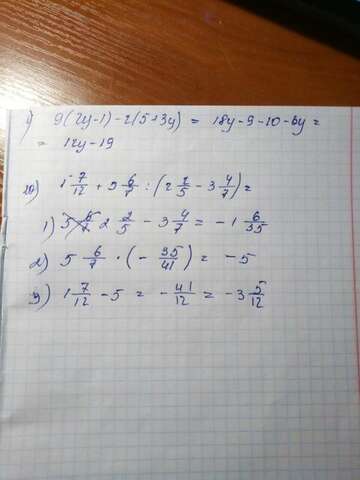 1) 9(2y-1)-2(5+3y) = 18y-9-10-6y =
= 12y-19
20) 1 7/12 + 5 6/7 : (2 2/5 - 3 4/7) =
1) 2 2/5 - 3 4/7 = -1 6/35
2) 5 6/7 · (- 35/41) = -5
3) 1 7/12 - 5 = - 41/12 = -3 5/12